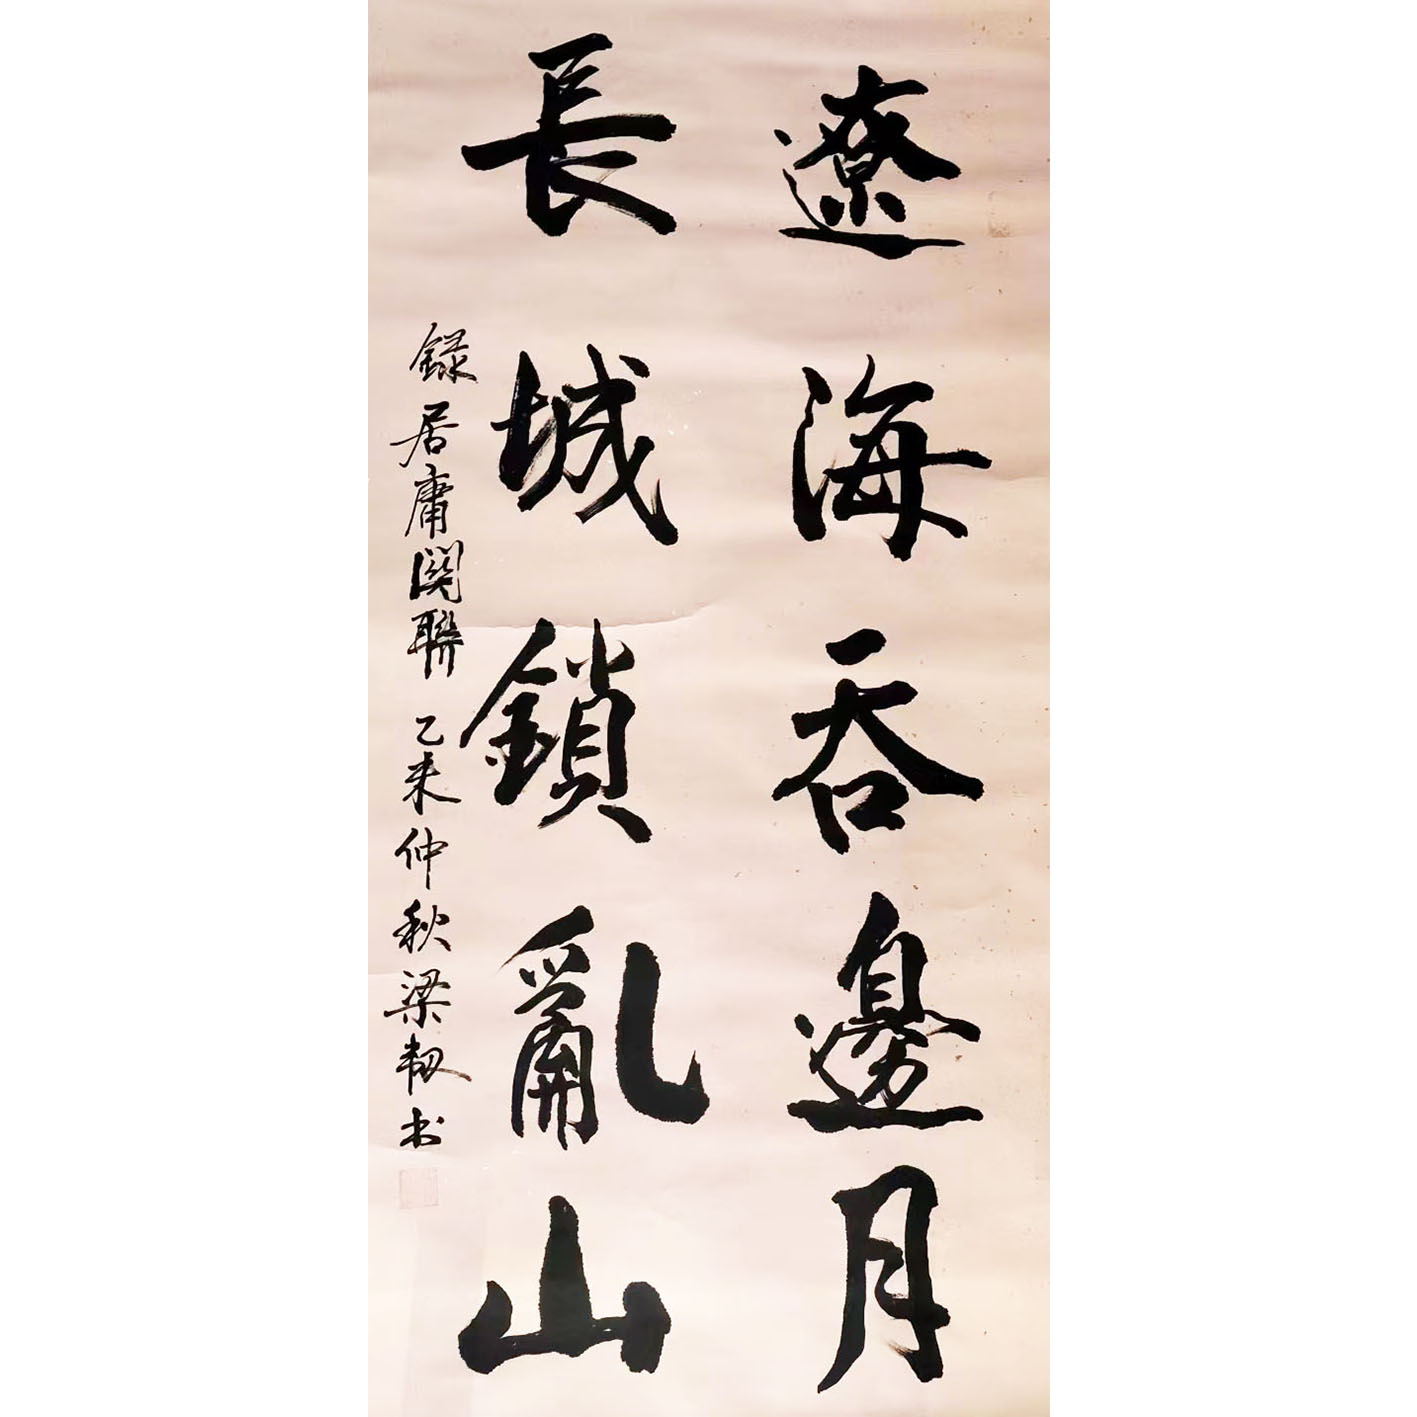 遼海吞邊月
長城鎖亂山
録居庸関聯 乙未仲秋梁韌书